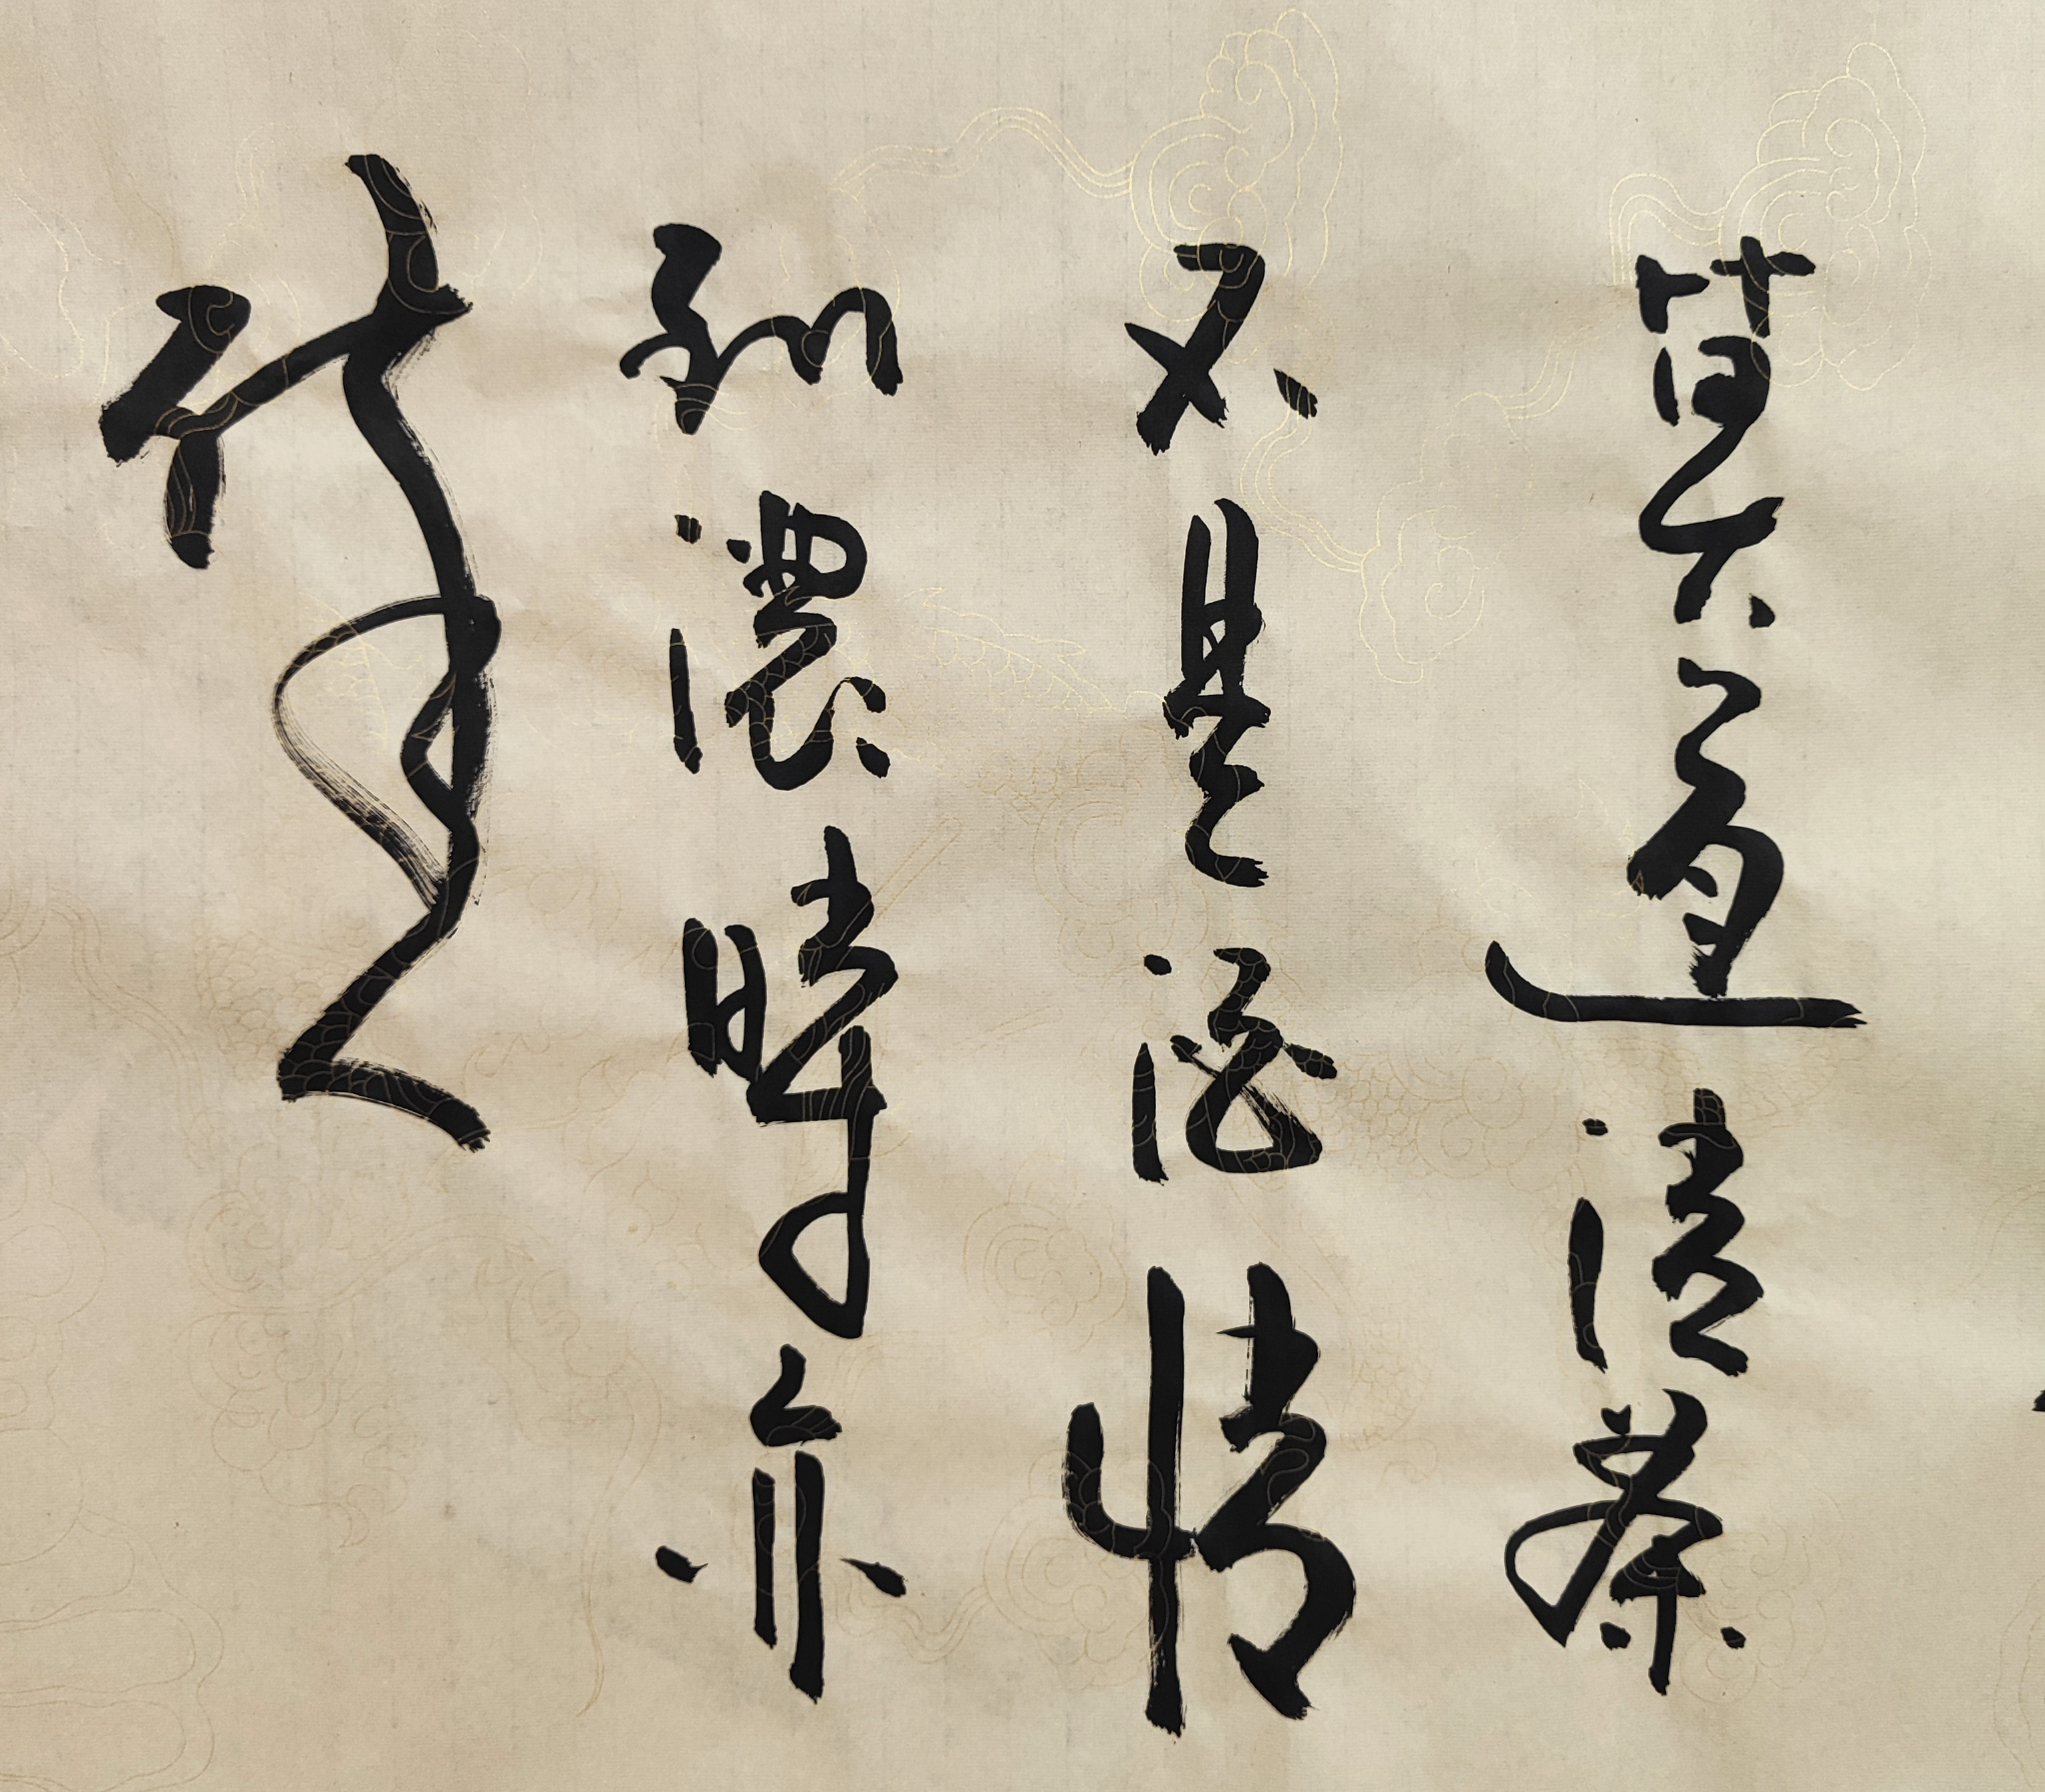 莫道清茶
不是酒情
到濃時亦
醉人